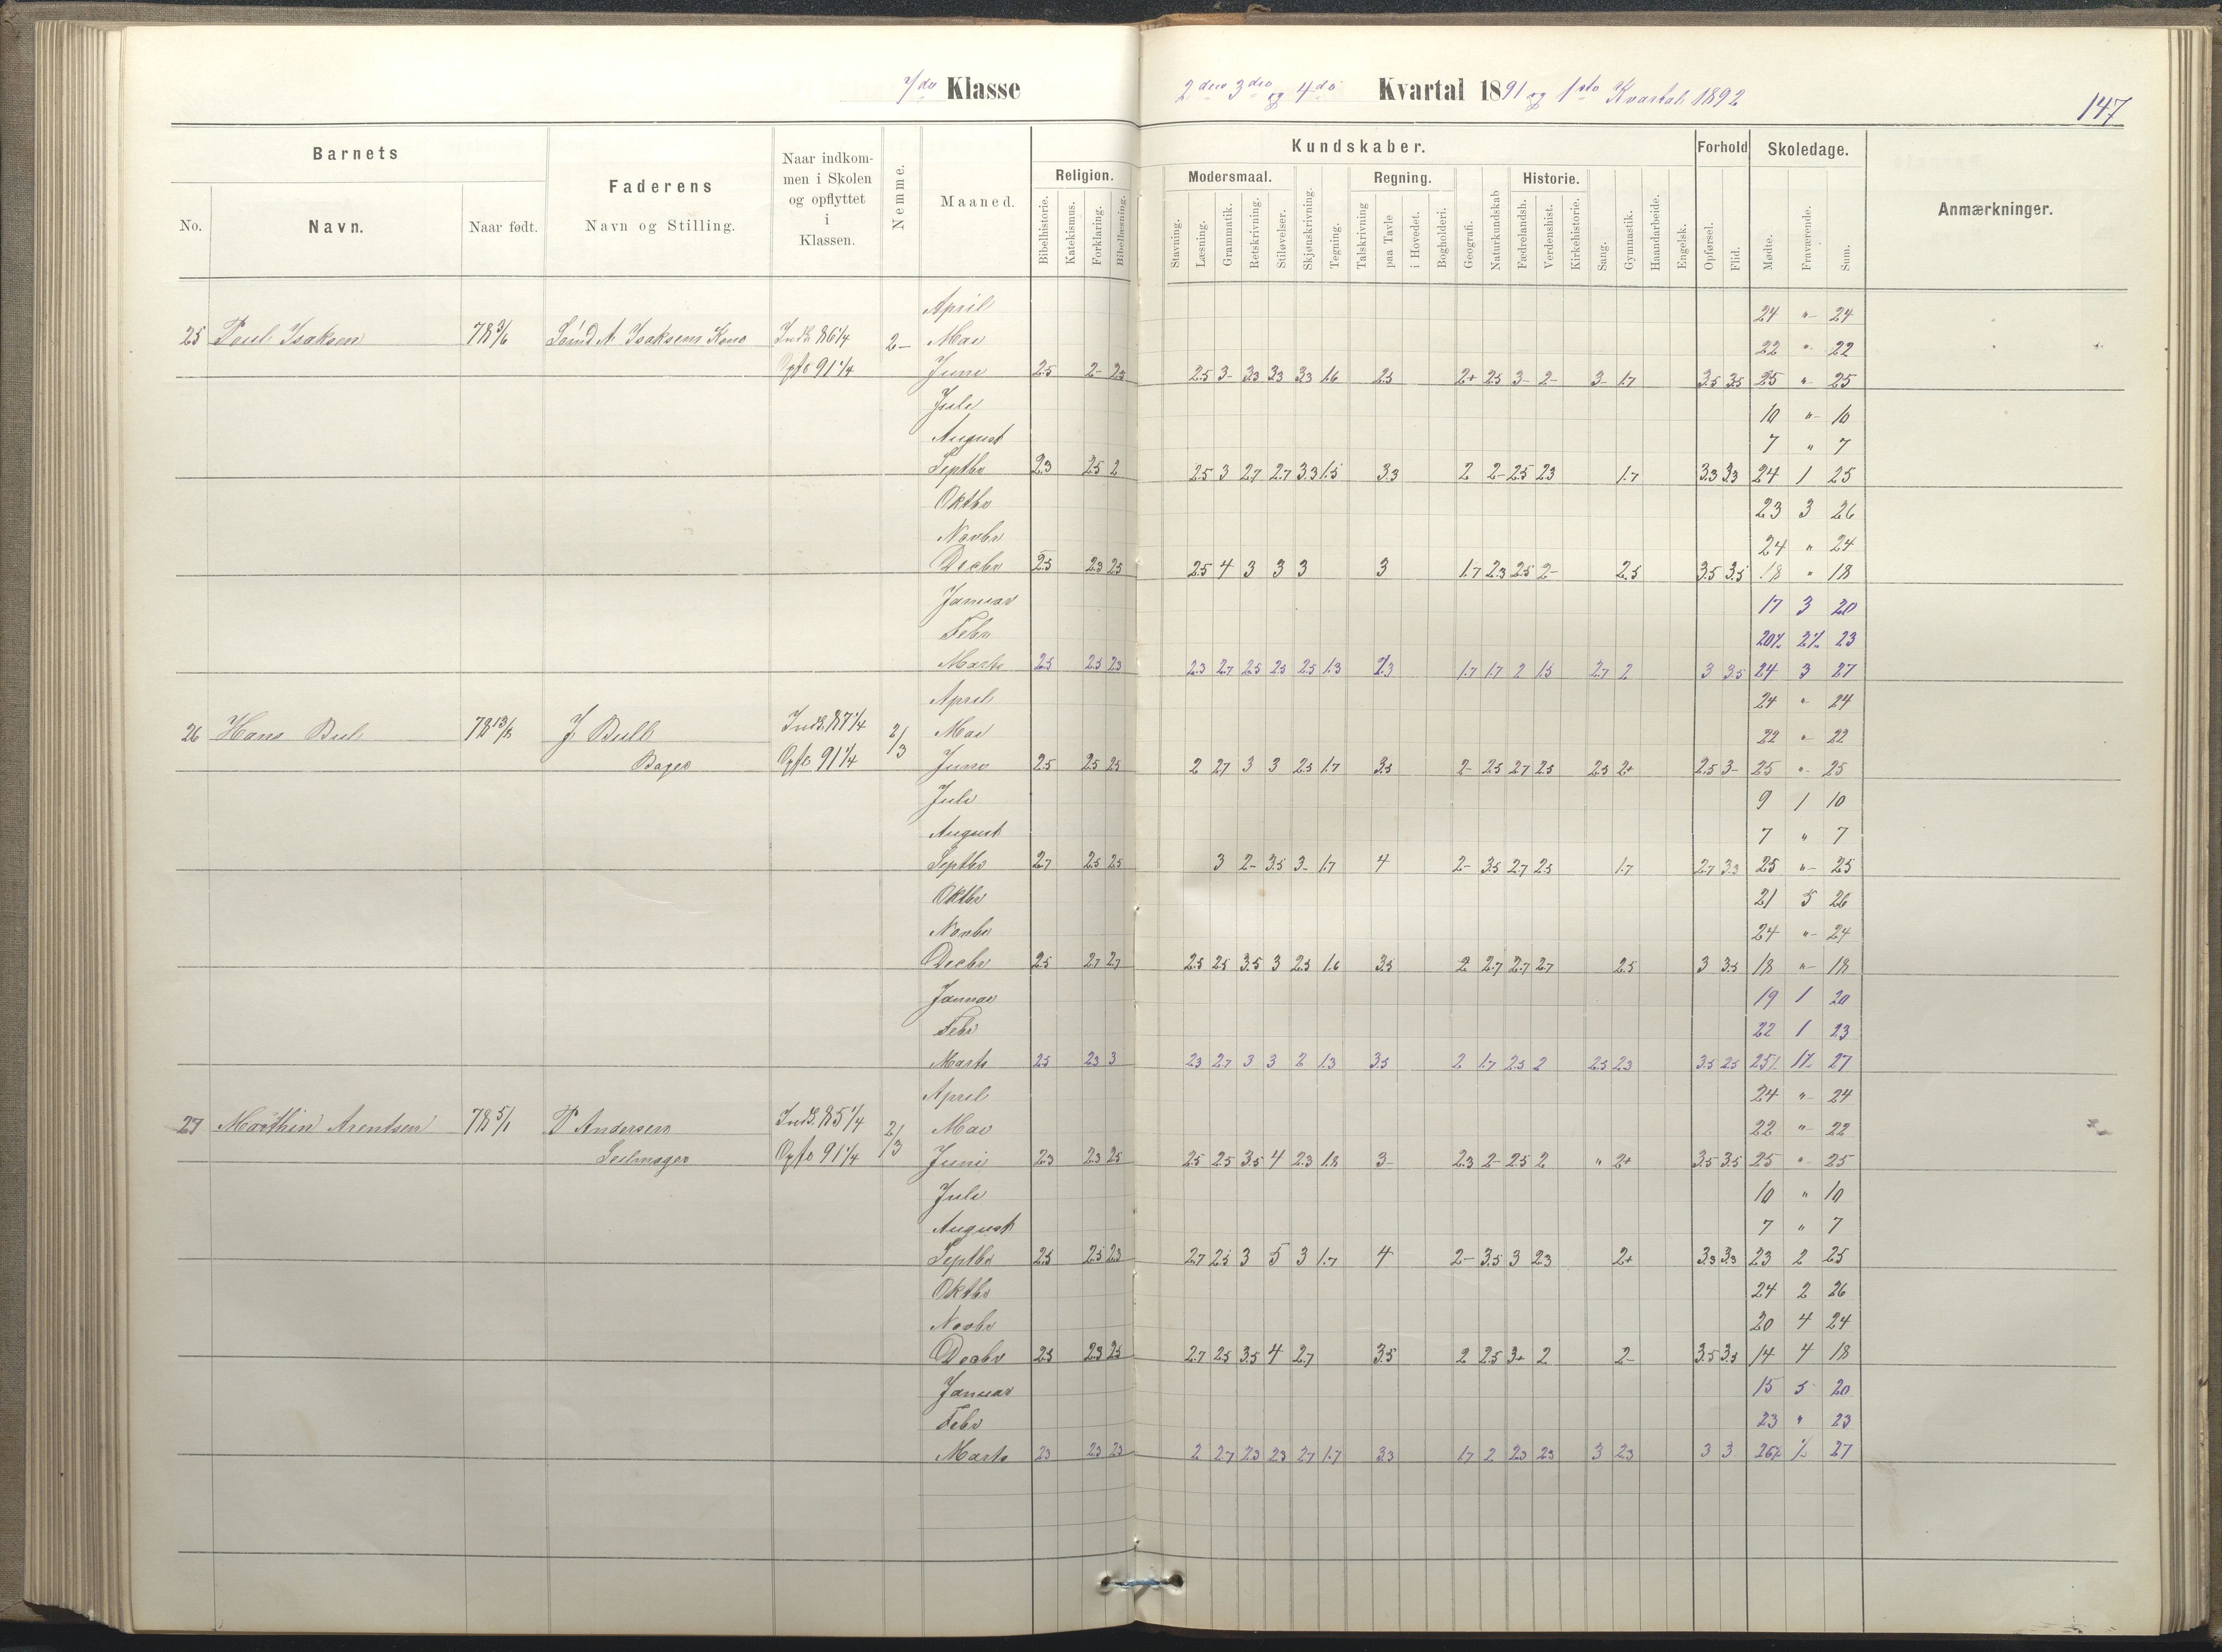 Klasse
2den 3die og 4de Kvartal 1891 og 1ste Kvartal 1892
147
Barnets
No.
Navn.
Naar født.
Faderens
Navn og Stilling.
Naar indkom-
men i Skolen
og opflyttet
i
Klassen.
Nemme.
Maaned.
Kundskaber.
Religion.
Bibelhistorie.
Katekismus.
Forklaring.
Bibellæsning.
Modersmaal.
Stavning.
Læsning.
Grammatik.
Retskrivning.
Stiløvelser.
Skjønskrivning.
Tegning.
Regning.
Talskrivning
paa Tavle
i Hovedet.
Bogholderi.
Geografi.
Naturkundskab
Historie.
Fædrelandsh.
Verdenshist.
Kirkehistorie.
Sang.
Gymnastik.
Haandarbeide.
Engelsk.
Forhold
Opførsel.
Flid.
Skoledage.
Mødte.
Fraværende.
Sum.
Anmærkninger.
April 24 " 24
25 Poul Isaksen 78 3/6 Isaksens Kone Indk. 86 1/4 2- Mai 22 " 22
Opfl 91 1/4 Juni 2.5 2- 2.3 2.5 3- 3.3 3.3 3.3 1.6 2.5 2+ 2.5 3- 2- 3- 1.7 3.5 3.5 25 " 25
Juli 10 " 10
August 7 " 7
Septbr 2.3 2.5 2 2.5 3 2.7 2.7 3.3 1.5 3.3 2 2- 2.5 2.3 1.7 3.3 3.3 24 1 25
Oktbr 23 3 26
Novbr 24 " 24
Decbr 2.5 2.3 2.5 2.5 4 3 3 3 3 1.7 2.3 2.5 2- 2.5 3.5 3.5 18 " 18
Januar 17 3 20
Febr 20½ 2½ 23
Marts 2.5 2.5 2.3 2.3 2.7 2.5 2.5 2.5 1.3 1.7 1.7 2 1.5 2.7 2 3 3.5 24 3 27
April 24 " 24
26 Hans Bul 78 13/8 J Bull Indk. 87 1/4 2/3 Mai 22 " 22
Bager Opfl 91 1/4 Juni 2.5 2.5 2.5 2 2.7 3 3 2.5 1.7 3.5 2- 2.5 2.7 2.5 2.5 2+ 2.5 3- 25 " 25
Juli 9 1 10
August 7 " 7
Septbr 2.7 2.5 2.5 3 2- 3.5 3- 1.7 4 2- 3.5 2.7 2.5 1.7 2.7 3.3 25 " 25
Oktbr 21 5 26
Novbr 24 " 24
Decbr 2.5 2.7 2.7 2.5 2.5 3.5 3 2.5 1.6 3.5 2 2.7 2.7 2.7 2.5 3 3.5 18 " 18
Januar 19 1 20
Febr 22 1 23
Marts 2.5 2.3 3 2.3 2.7 3 3 2 1.3 3.5 2 1.7 2.5 2 2.5 2.3 3.5 2.5 25½ 1½ 27
April 24 " 24
27 Marthin Arentsen 78 5/1 P Andersen Indk. 85 1/4 2/3 Mai 22 " 22
Seilmager Opfl 91 1/4 Juni 2.3 2.3 2.5 2.5 2.5 3.5 4 2.3 1.8 3- 2.3 2- 2.5 2 " 2+ 3.5 3.5 25 " 25
Juli 10 " 10
August 7 " 7
Septbr 2.5 2.5 2.3 2.7 2.5 3 5 3 1.7 4 2- 3.5 3 2.3 2+ 3.3 3.3 23 2 25
Oktbr 24 2 26
Novbr 20 4 24
Decbr 2.5 2.3 2.5 2.7 2.5 3.5 4 2.7 3.5 2 2.5 3+ 2 2- 3.5 3.5 14 4 18
Januar 15 5 20
Febr 23 " 23
Marts 2.3 2.3 2.3 2 2.7 2.3 2.3 2.7 1.7 3.3 1.7 2 2.3 2.3 3 2.3 3 3 26½ ½ 27